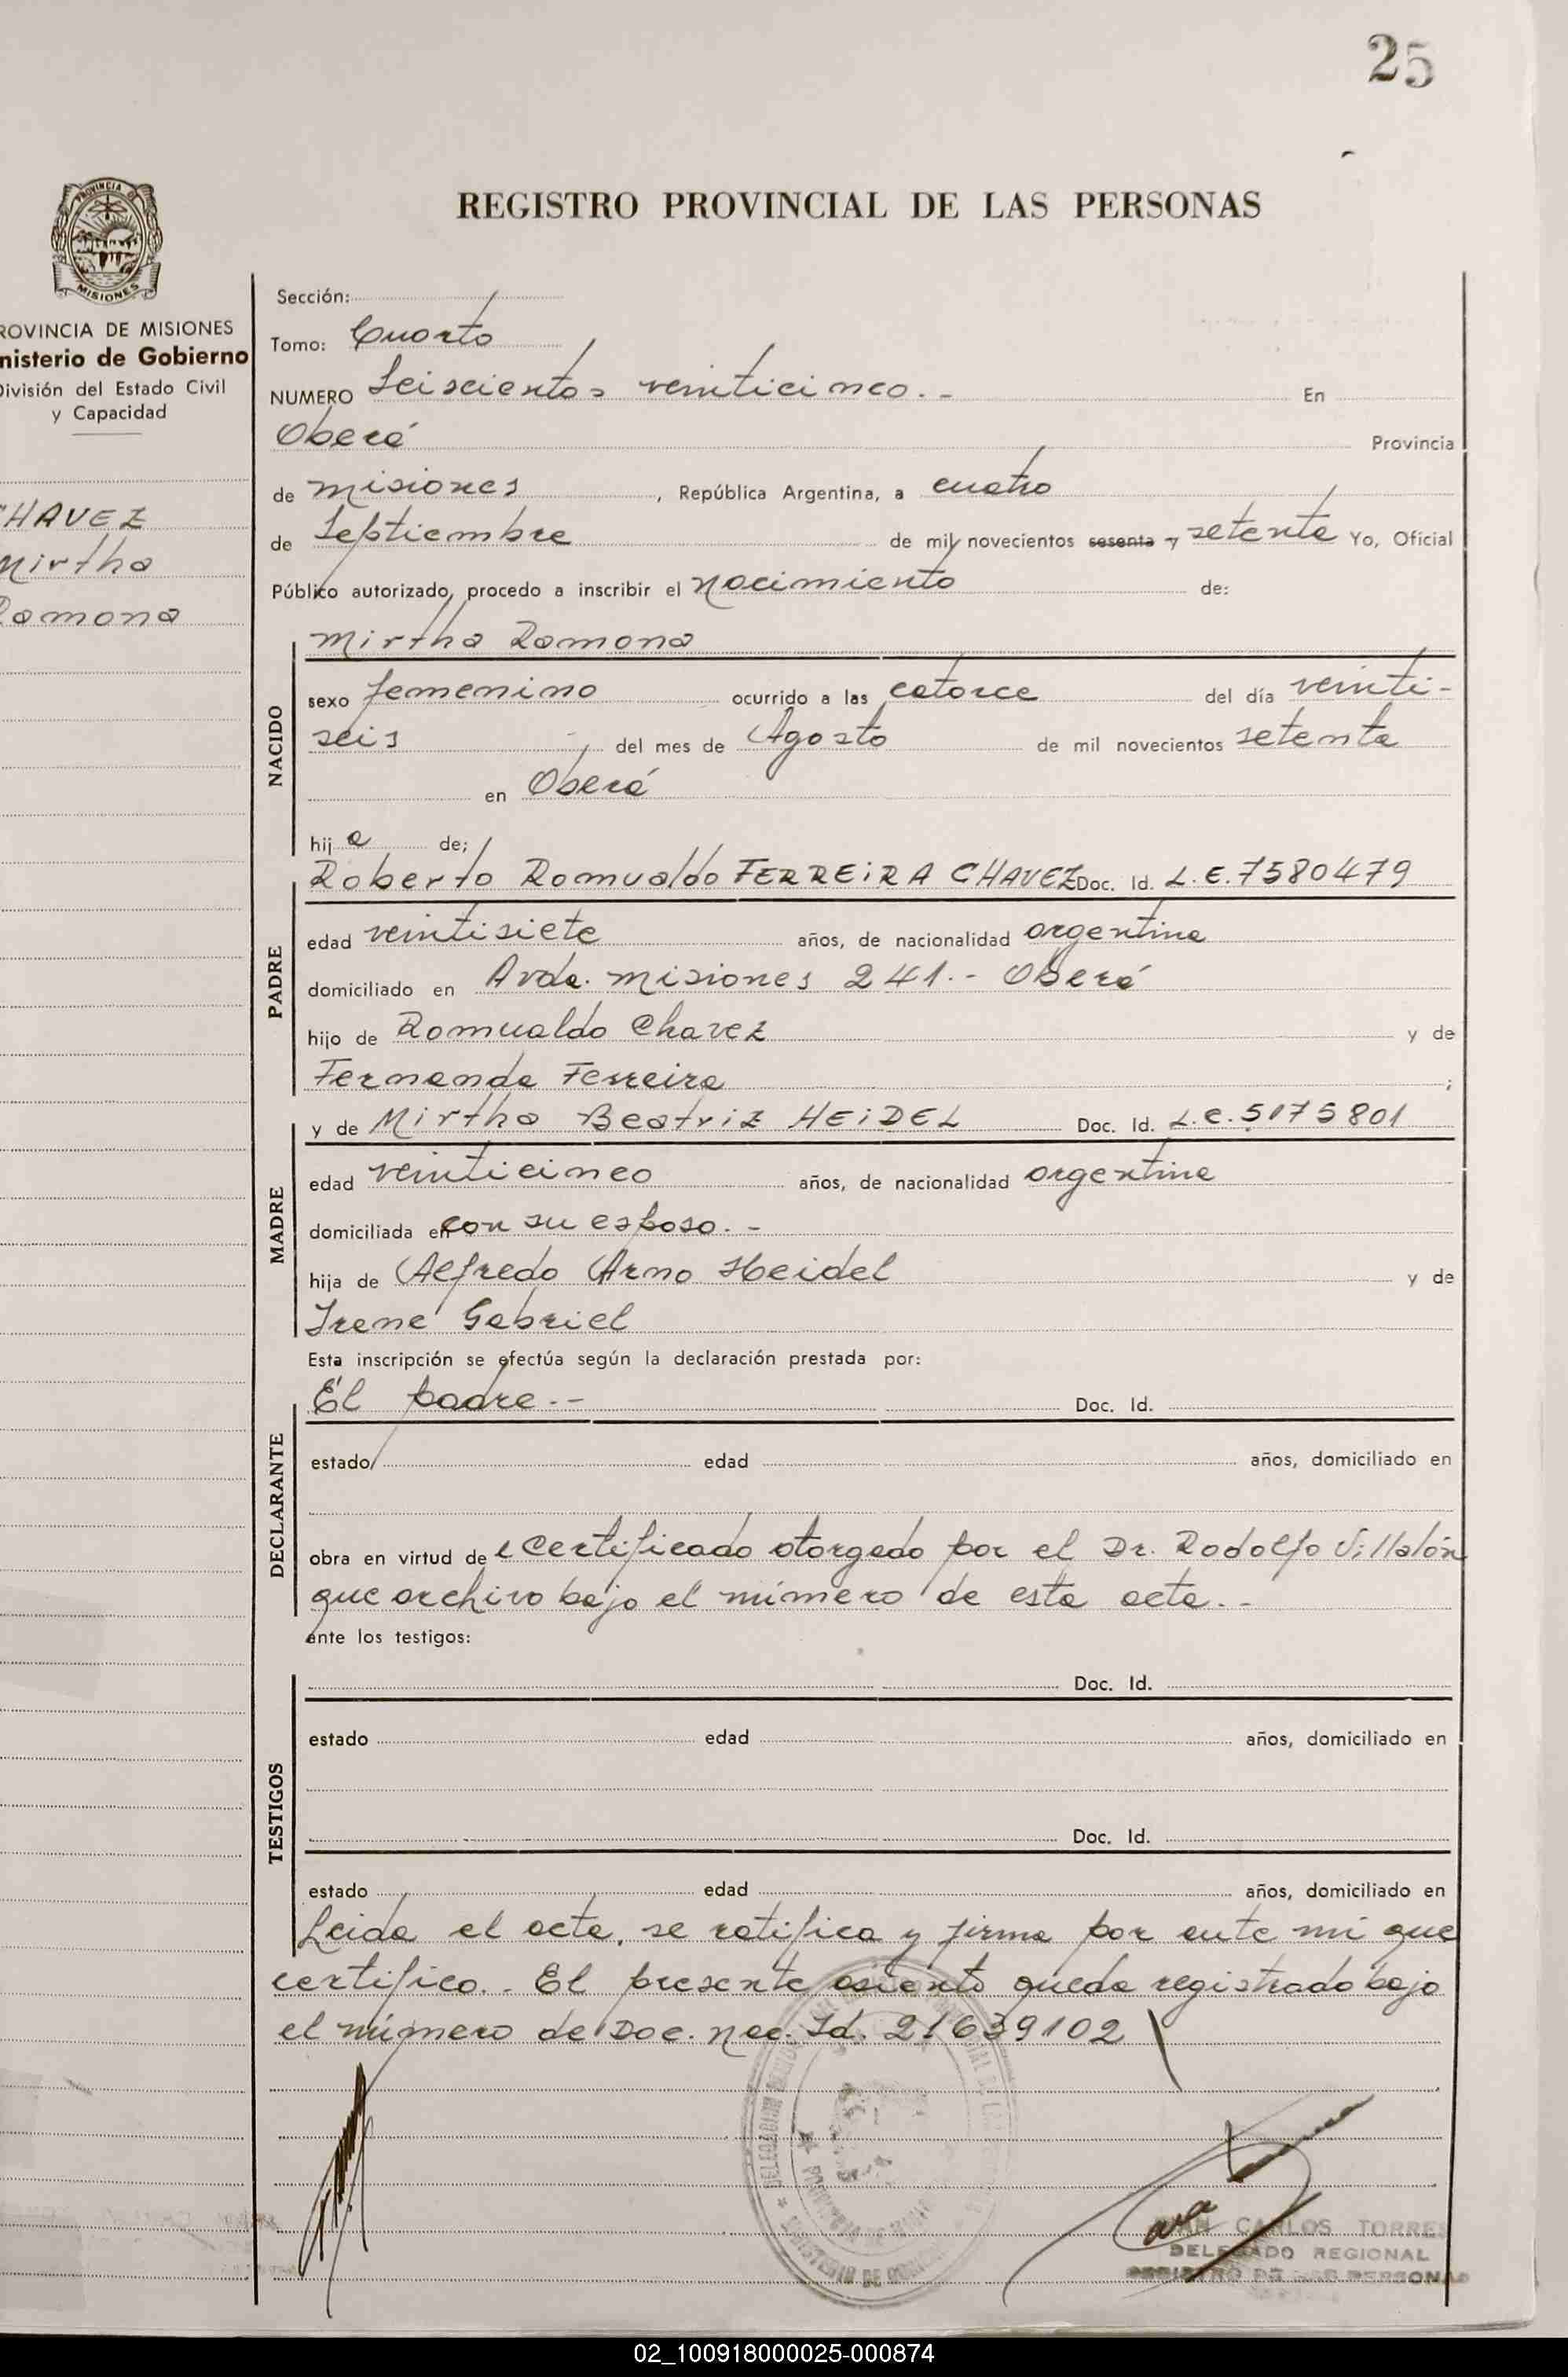 25
REGISTRO PROVINCIAL DE LAS PERSONAS
PROVINCIA DE
MISIONES
ROVINCIA DE MISIONES
nisterio de Gobierno
División del Estado Civil
y Capacidad
CHAVEZ
Mirtha
Ramona
Sección:
Tomo: Cuarto
NUMERO Seiscientos veinticinco.- En
Oberá Provincia
de Misiones, República Argentina, a cuatro
de Septiembre de mil novecientos sesenta y setenta Yo, Oficial
Público autorizado, procedo a inscribir el nacimiento de:
Mirtha Ramona
NACIDO
sexo femenino ocurrido a las catorce del día veinti-
seis del mes de Agosto de mil novecientos setenta
en Oberá
hij a de;
Roberto Romualdo FERREIRA CHAVEZ Doc. Id. L.E. 7580479
PADRE
edad veintisiete años, de nacionalidad argentina
domiciliado en Avda. Misiones 241.- Oberá
hijo de Romualdo Chavez y de
Fernanda Ferreira ;
y de Mirtha Beatriz HEIDEL Doc. Id. L.C. 5175801
MADRE
edad veinticinco años, de nacionalidad argentina
domiciliada en con su esposo.-
hija de Alfredo Arno Heidel y de
Irene Gabriel
Esta inscripción se efectúa según la declaración prestada por:
El padre.-- Doc. Id.
DECLARANTE
estado edad años, domiciliado en
obra en virtud de Certificado otorgado por el Dr. Rodolfo Villalón
que archivo bajo el número de esta acta.-
ante los testigos:
TESTIGOS
Doc. Id.
estado edad años, domiciliado en
Doc. Id.
estado edad años, domiciliado en
Leida el acta, se ratifica y firma por ante mí que
certifico.. El presente asiento queda registrado bajo
el número de Doc. nac. Id. 21639102
JUAN CARLOS TORRES
DELEGADO REGIONAL
REGISTRO DE LAS PERSONAS
02_100918000025-000874